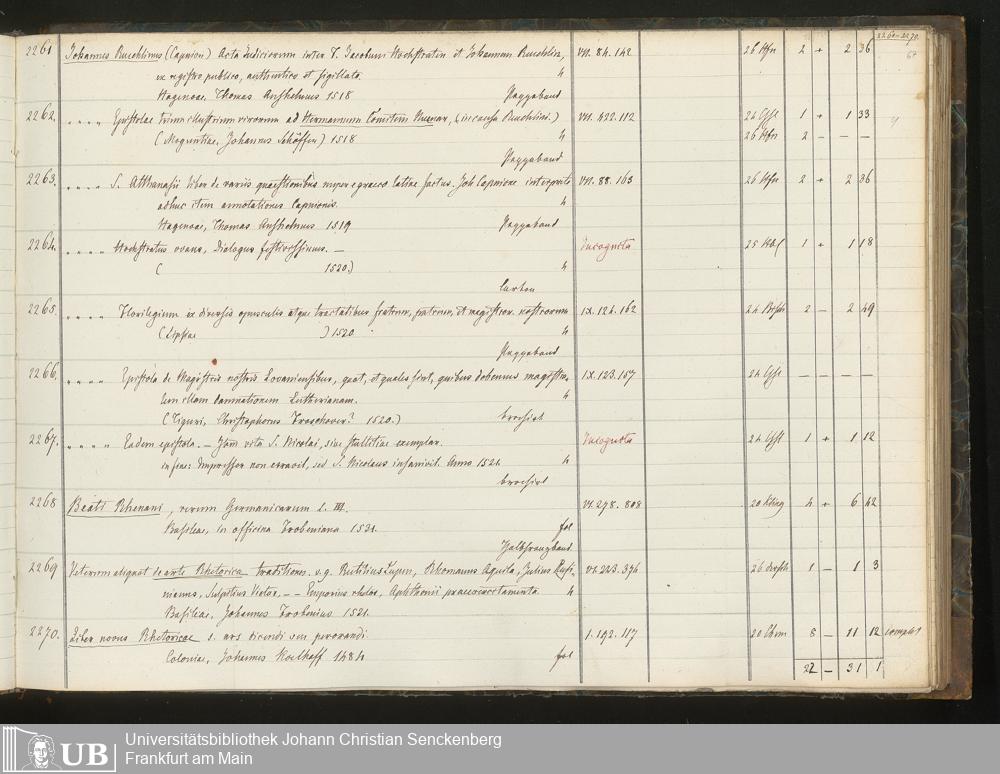 2260-2270.
2261 Johannes Reuchlinus (Capnion) Acta Judiciorum inter F. Jacobum Hochstraten et Johannem Reuchlin, VII. 84. 142 26 Hfn 2 + 2 36
ex registro publico, authentico et sigillato. 4
Hagenoae, Thomas Anshelmus 1518 Pappband
2262. " " " " Epistolae trium illustrium virorum ad Hermannum Comitem Nuenar, (in causa Reuchlini.) VII. 422. 112 1 + 1 33
(Moguntiae, Johannes Schöffer) 1518 4 26 Hfn 2 — — —
Pappband
2263. " " " " S. Atthanasii liber de variis quaestionibus nuper e graeco latine factus. Joh Capnione interprete VII. 88. 163 26 Hfn 2 + 2 36
adhuc item annotationes Capnionis. 4
Hagenoae, Thomas Anshelmus 1519 Pappband
2264. " " " " Hochstratus ovans, Dialogus festivissimus. — Incognita 1 + 1 18
( 1520.) 4
Carton
2265. " " " " Florilegium ex diversis opusculis atque tractatibus fratrum, patrum, et magistror. nostrorum IX. 124. 162 2 — 2 49
(Lipsiae ) 1520. 4
Pappband
2266. " " " " Epistola de Magistris nostris Lovaniensibus, quot, et quales sint, quibus debemus magistra- IX. 123. 157 — — — —
lem illam damnationem Lutherianam. 4
(Tiguri, Christophorus Froschover? 1520.) brochirt
2267. " " " " Eadem epistola. — Item vita S. Nicolai, sive stultitiae exemplar. Incognita 1 + 1 12
in fine: Impressor non erravit, sed S. Nicolaus insanivit. Anno 1521. 4
brochirt
2268 Beati Rhenani, rerum Germanicarum l. III. VI. 278. 808 4 + 6 42
Basileae, in officina Frobeniana 1531. fol
Halbfranzband
2269 Veterum aliquot de arte Rhetorica traditiones. v. g. Rutilius Lupus, Rhomanus Aquila, Julius Rufi- VI. 223. 376 1 — 1 3
nianus, Sulpitius Victor, — — Emporius rhetor, Aphthonii praeexercitamenta. 4
Basileae, Johannes Frobenius 1521.
2270. Liber novus Rhetoricae s. ars dicendi seu perorandi. 1. 192. 117 8 — 11 12 complet
Coloniae, Johannes Koelhoff 1484 fol
22 — 31 1
UB
Universitätsbibliothek Johann Christian Senckenberg
Frankfurt am Main